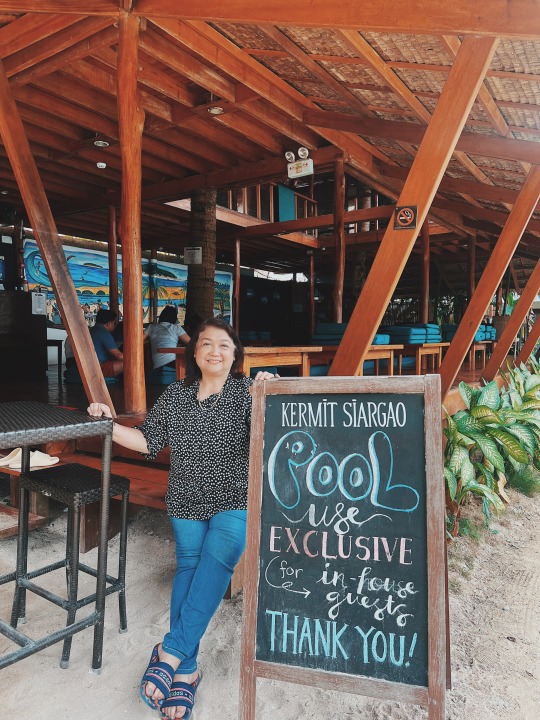 KERMIT SIARGAO
POOL
use
EXCLUSIVE
for in-house
guests
THANK YOU!